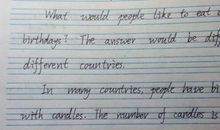 What would people like to eat
birthdays? The answer would be dif
different countries.
In many countries, people have bi
with candles. The number of candles is